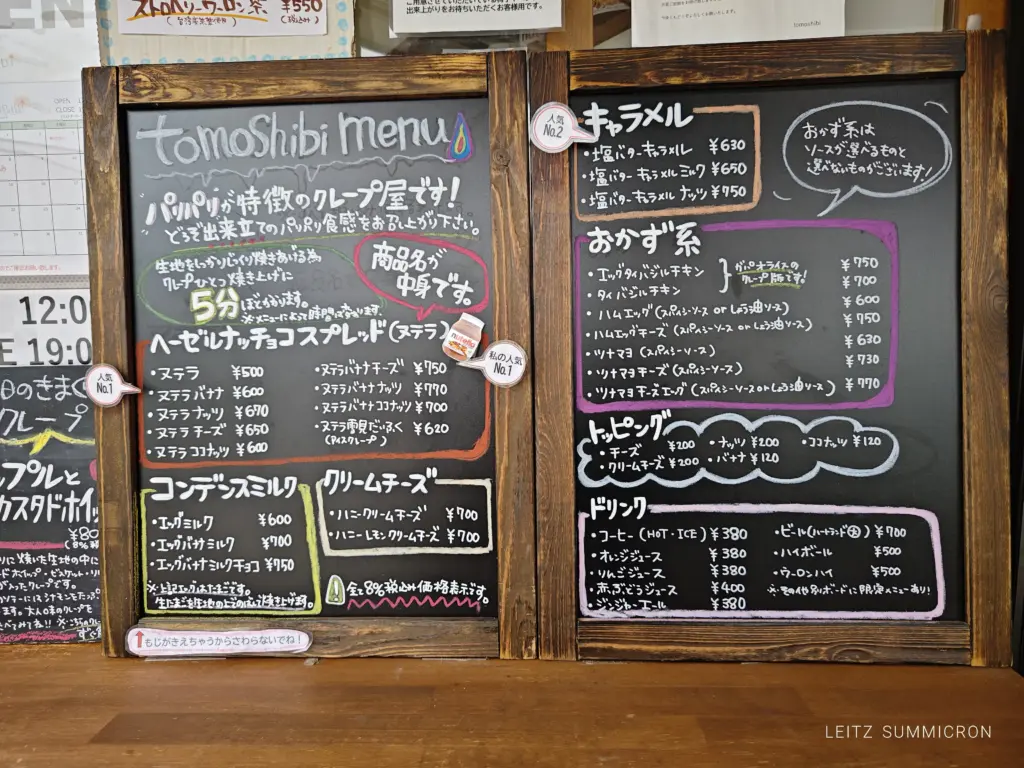 ストロベリーウーロン茶 ¥550
(税込み)
出来上がりをお待ちいただくお客様用です。
tomoshibi
OPEN
CLOSE
12:0
E 19:0
日のきまぐ
クレープ
プルと
カスタドホイッ
¥80
tomoshibi menu
パリパリが特徴のクレープ屋です!
どうぞ出来立てのパリパリ食感をお召し上が下さい。
生地をしっかりじっくり焼きあげる為
クレープひとつ焼き上げに
5分ほどかかります。
※メニューによって時間が変わります。
商品名が
中身です。
ヘーゼルナッチョコスプレッド(ヌテラ)
nutella
人気
No.1
私の人気
No.1
・ヌテラ ¥500
・ヌテラバナナ ¥600
・ヌテラナッツ ¥670
・ヌテラチーズ ¥650
・ヌテラココナッツ ¥600
・ヌテラバナナチーズ ¥750
・ヌテラバナナナッツ ¥770
・ヌテラバナナココナッツ ¥700
・ヌテラ雪見だいふく ¥620
(アイスクレープ)
コンデンスミルク
・エッグミルク ¥600
・エッグバナナミルク ¥700
・エッグバナナミルクチョコ ¥750
※上記エッグはたまごです。
生たまごを生地の上でのばして焼き上げます。
クリームチーズ
・ハニークリームチーズ ¥700
・ハニーレモンクリームチーズ ¥700
全て8%税込み価格表示です。
↑もじがきえちゃうからさわらないでね!
人気
No.2
キャラメル
・塩バターキャラメル ¥630
・塩バターキャラメルミルク ¥650
・塩バターキャラメルナッツ ¥750
おかず系は
ソースが選べるものと
選べないものがございます!
おかず系
・エッグタイバジルチキン ¥750
・タイバジルチキン ¥700
ガパオライスの
クレープ版です!
・ハムエッグ(スパイシーソース or しょう油ソース) ¥600
・ハムエッグチーズ(スパイシーソース or しょう油ソース) ¥750
・ツナマヨ(スパイシーソース) ¥630
・ツナマヨチーズ(スパイシーソース) ¥730
・ツナマヨチーズエッグ(スパイシーソース or しょう油ソース) ¥770
トッピング
・チーズ ¥200 ・ナッツ ¥200 ・ココナッツ ¥120
・クリームチーズ ¥200 ・バナナ ¥120
ドリンク
・コーヒー(HOT・ICE) ¥380
・オレンジジュース ¥380
・りんごジュース ¥380
・赤ぶどうジュース ¥400
・ジンジャーエール ¥380
・ビール(ハートランド小) ¥700
・ハイボール ¥500
・ウーロンハイ ¥500
※その他別ボードに限定メニューあり!
LEITZ SUMMICRON